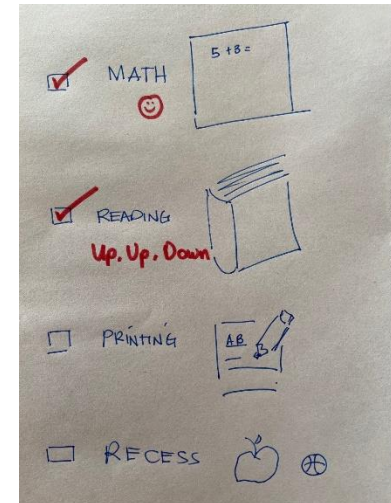 MATH
5 + 8 =
READING
Up, Up, Down
PRINTING
AB
RECESS